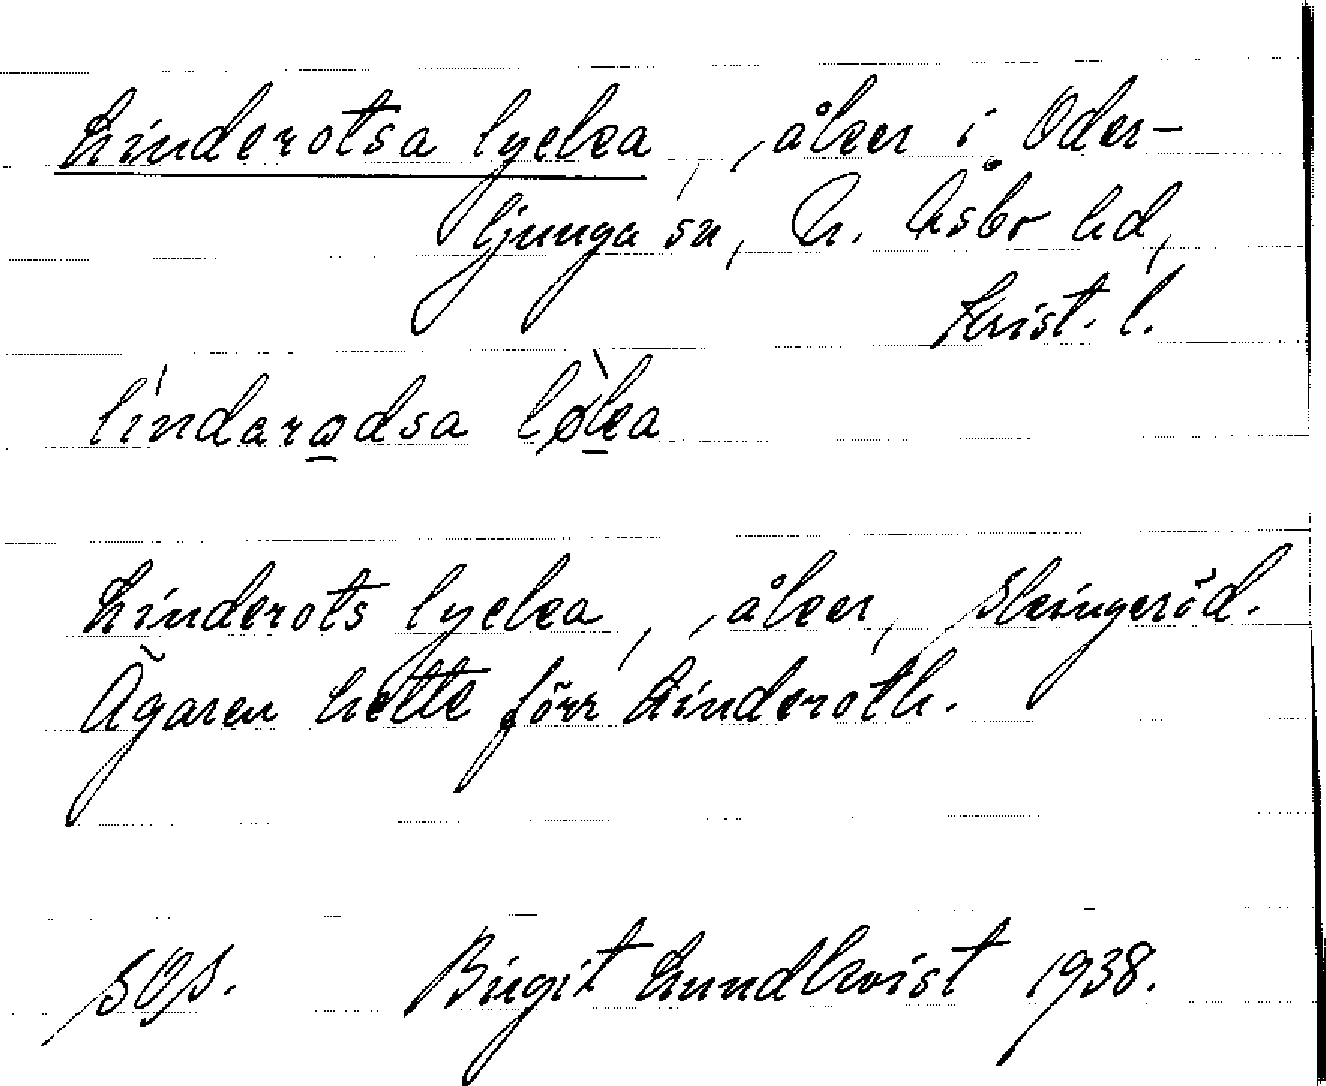 Linderotsa lycka, åker i Oder-
ljunga sn, N. Åsbo hd,
Krist. l.
líndarodsa lø̀ka
Linderots lycka, åker, Skingeröd.
Ägaren hette förr Linderoth.
SOS. Birgit Lundkvist 1938.